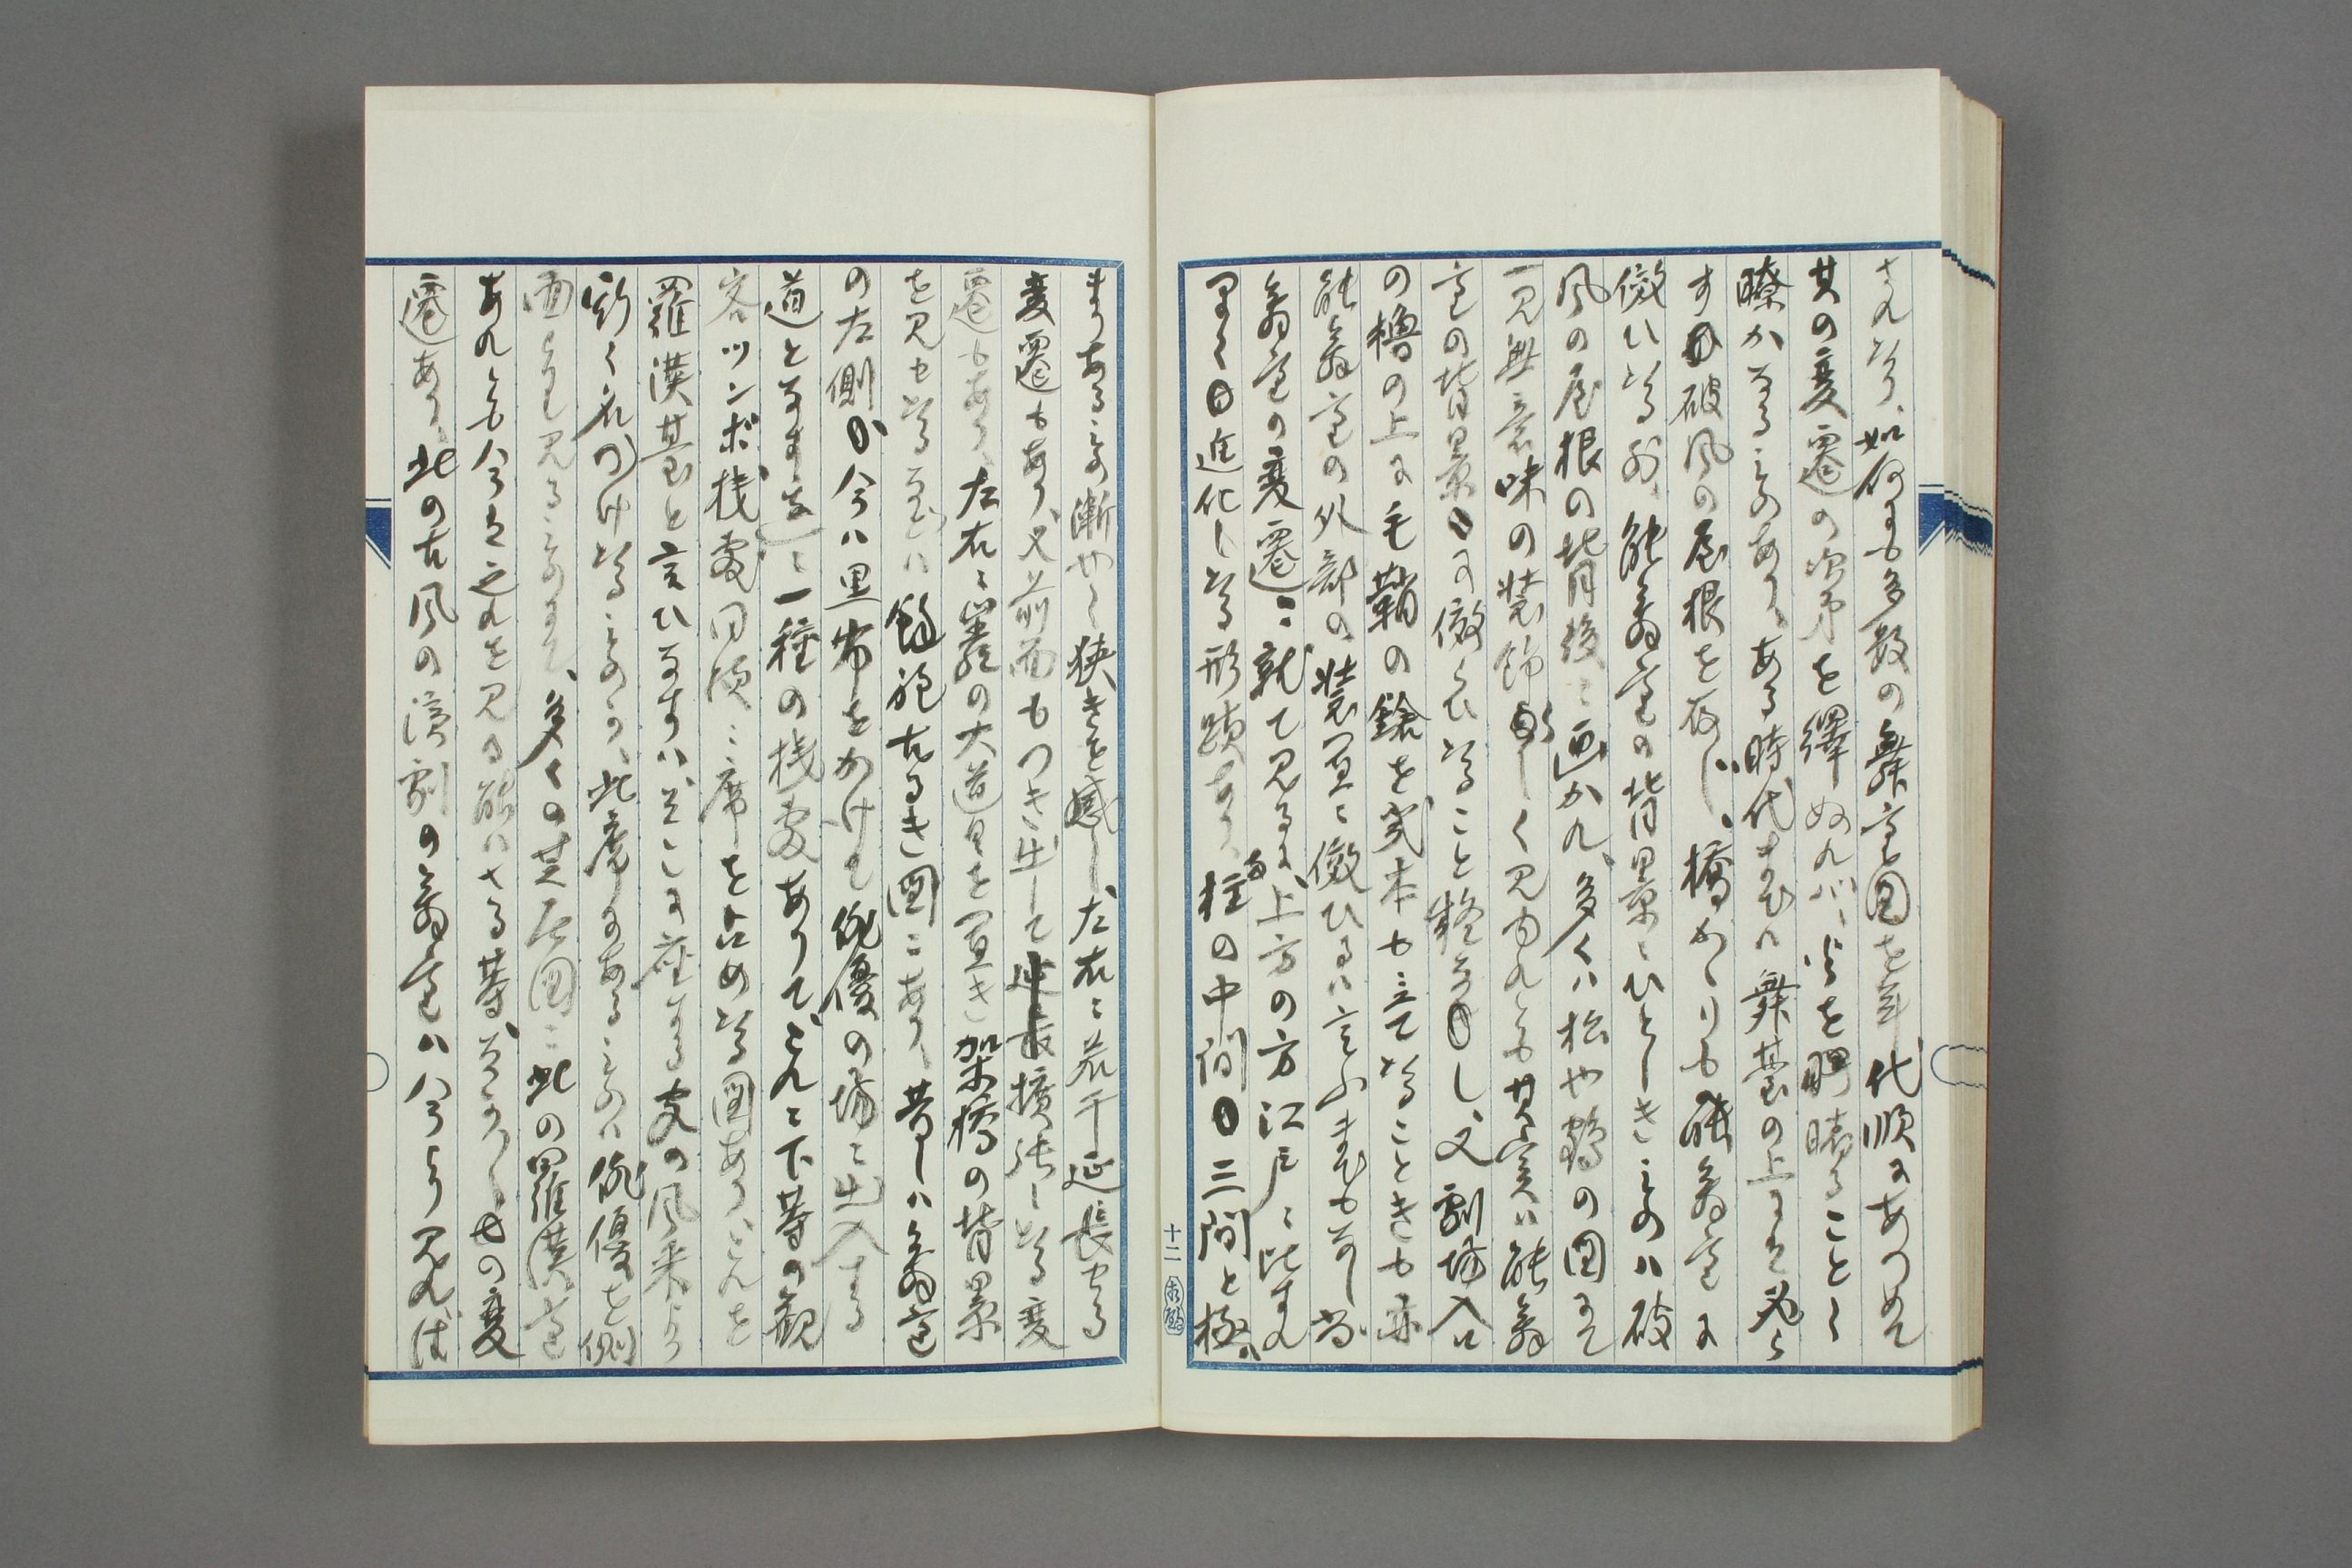 されたり、如何にも多数の舞台図を年代順にあつめて
其の変遷の次第を繹ぬれバ、迹を睹ることく
瞭かなるものあり、ある時代までハ舞台の上にも必ら
す破風の屋根を存し、橋がゝりも能舞台に
倣ひたる外、能舞台の背景にひとしきものハ破
風の屋根の背後に画かれ、多くハ松や鶴の図にて
一見無意味の装飾らしく見ゆれとも其実ハ能舞
台の背景に倣へたること疑なし、又劇場入口
の櫓の上に毛鞘の鎗を幾本も立てたることきも亦
能舞台の外部の装置に倣ひるハ言ふまでも無し、尚
舞台の変遷に就て見るに、上方の方江戸に比すれ
早く進化したる形跡あり、柱の中間三間と極ハ
まりあるもの漸やく狭きを感し、左右に若干延長せる
変遷もあり、又前面もつき出して拡張したる変
遷もあり、左右に堂々の大道具を置き架橋の背景
を見せたる為めハ 古るき図にあり、昔しハ舞台
の左側か今ハ黒布をかけて俳優の場に出入する
道となす處に一種の桟敷ありて、こゝに下等の観
客ツンボ桟敷同様に席を占めたる図あり、これを
羅漢台と言ひなすハそこに座する客の風采より
斯く名つけたるものか、此處にあるものハ俳優を側
面より見るものにて、多くの芝居図に此の羅漢台
あれとも今は之れを見る能ハさる等、なか／＼その変
遷あり、此の古風の演劇の舞台ハ今より見れば
十二